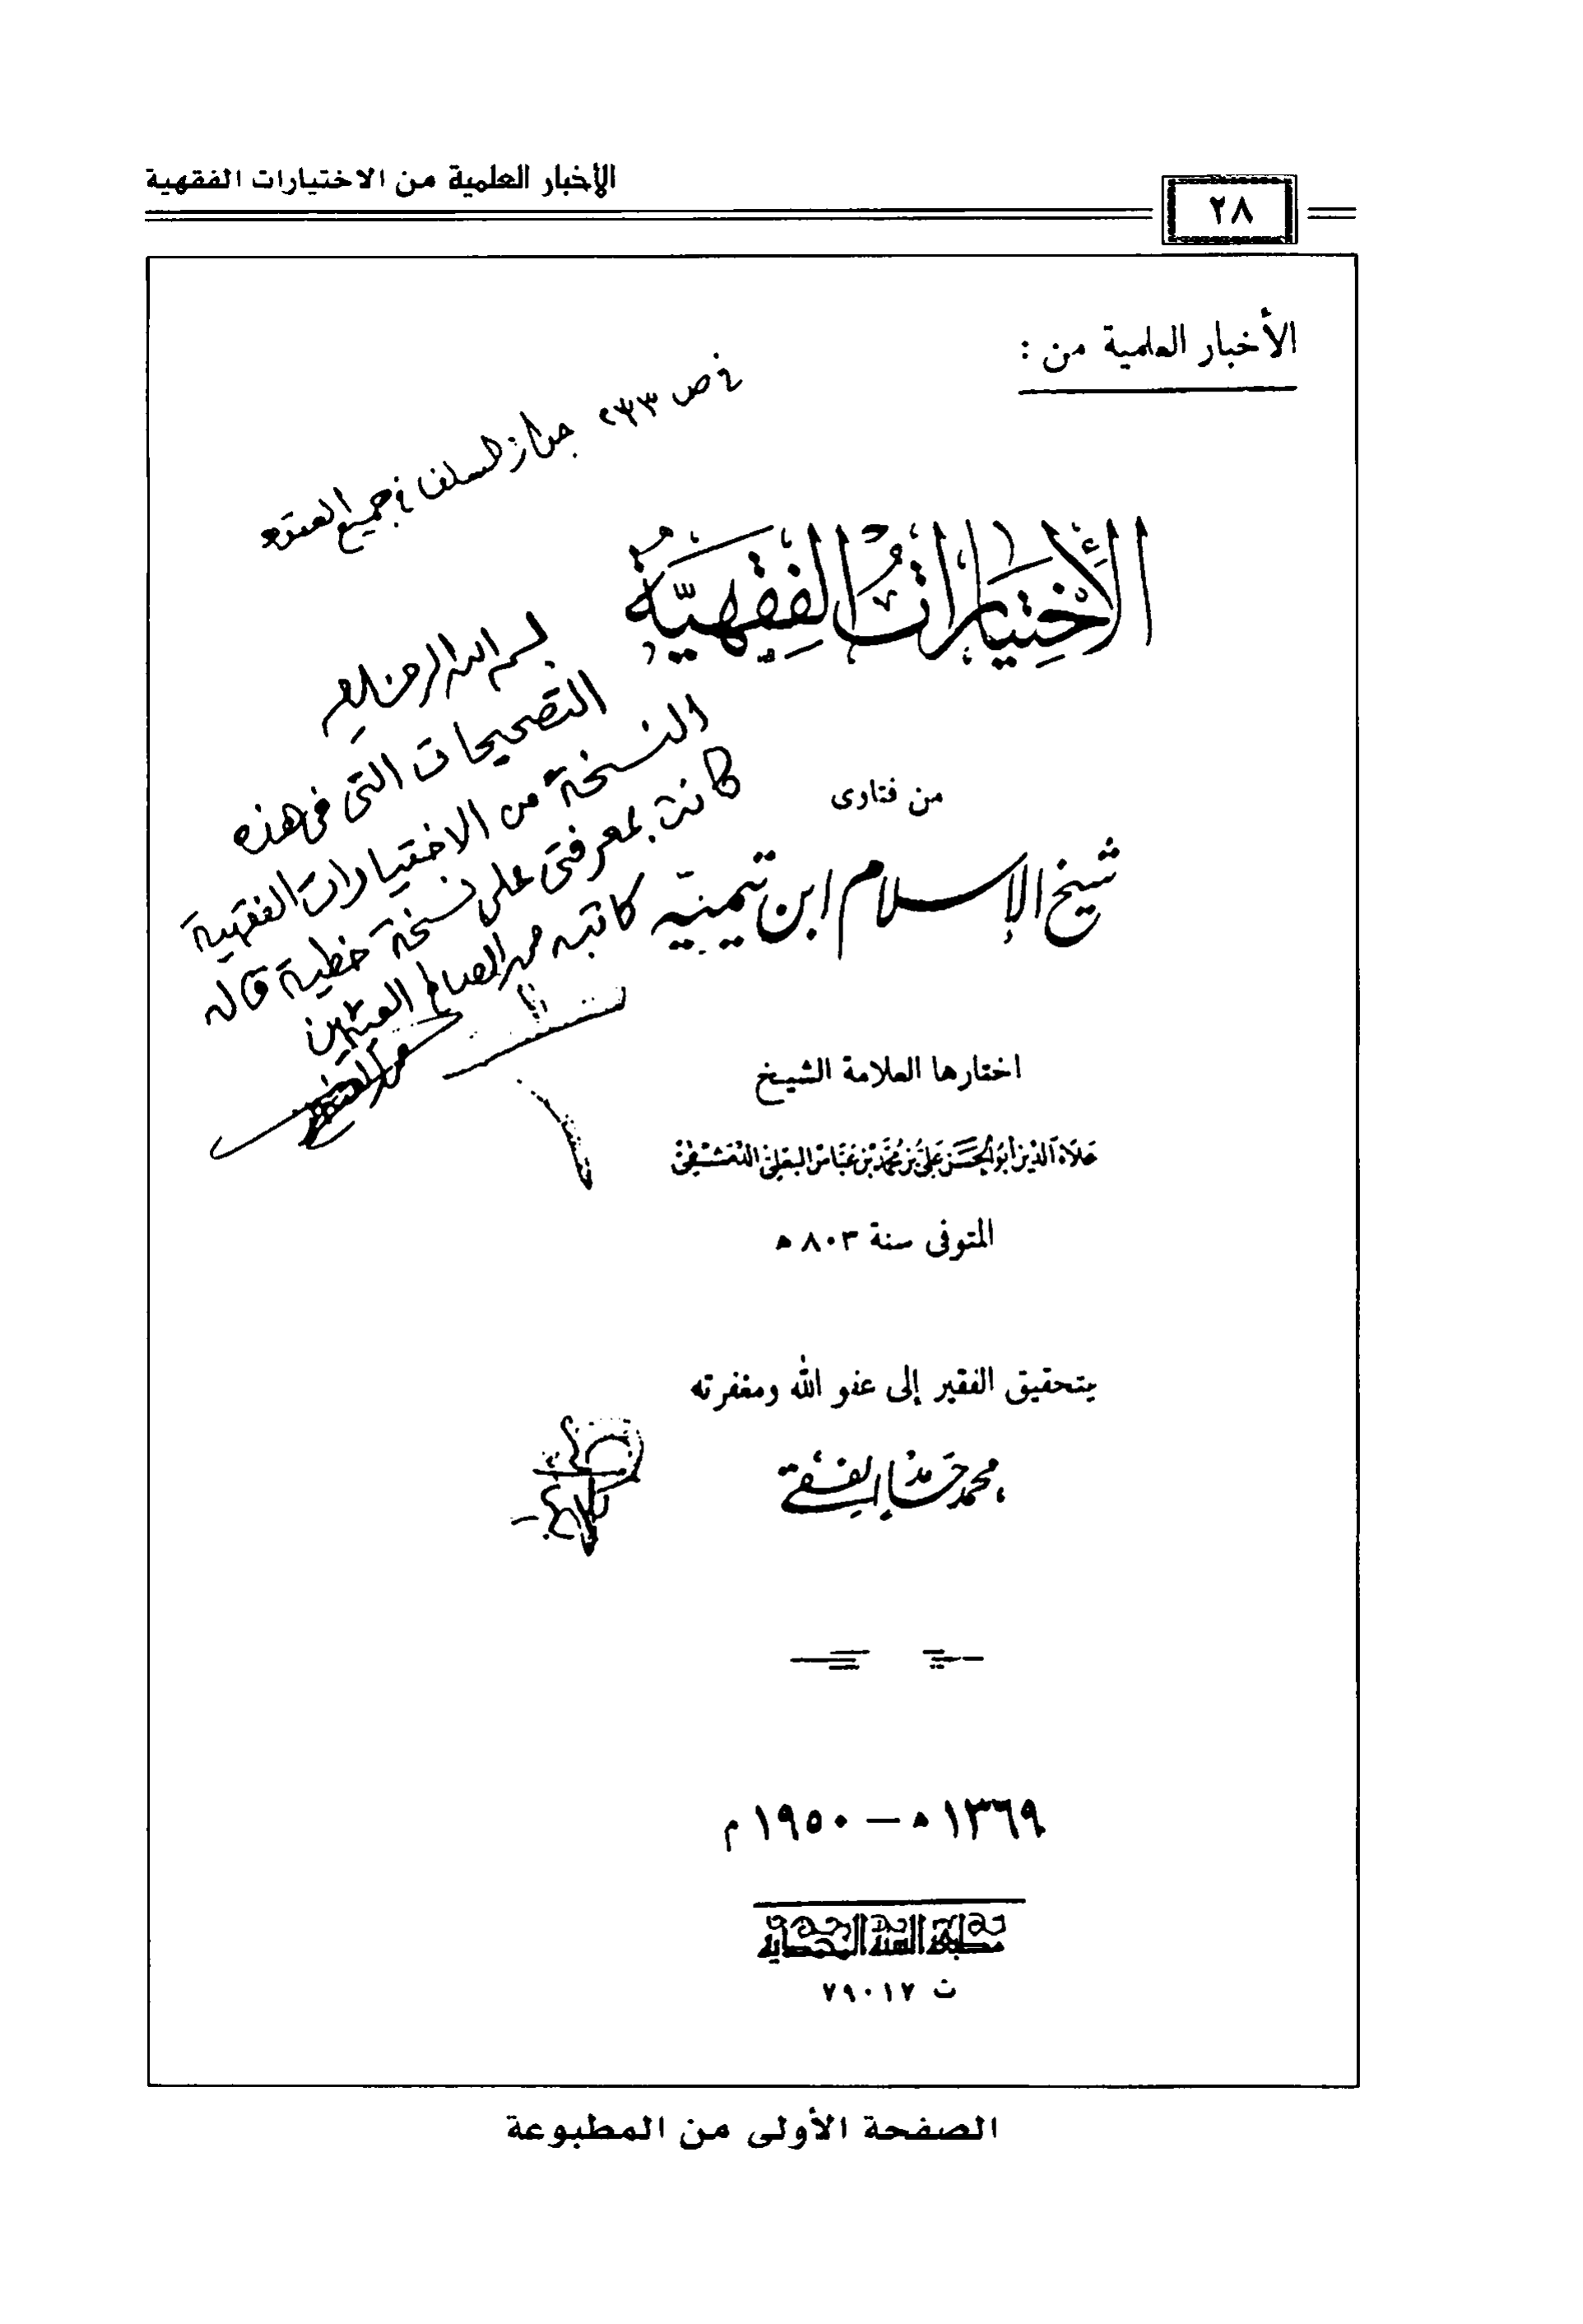 الأخبار العلمية من الاختيارات الفقهية
٢٨
الأخبار العلمية من :
في ص ٢٣٣ جواز السلف في جميع العقود
الاختيارات الفقهية
بسم الله الرحمن الرحيم
التصحيحات التى فى هذه
النسخة من الاختيارات الفقهية
كانت بمعرفتى على نسخة خطية قاله
كاتبه محمد الصالح العثيمين
من فتاوى
شيخ الإسلام ابن تيمية
اختارها العلامة الشيخ
علاء الدين أبو الحسن علي بن محمد بن عباس البعلي الدمشقي
المتوفى سنة ٨٠٣ ه
بتحقيق الفقير إلى عفو الله ومغفرته
محمد حامد الفقي
١٣٦٩ ه — ١٩٥٠ م
مطبعة السنة المحمدية
ت ٧٩٠١٧
الصفحة الأولى من المطبوعة